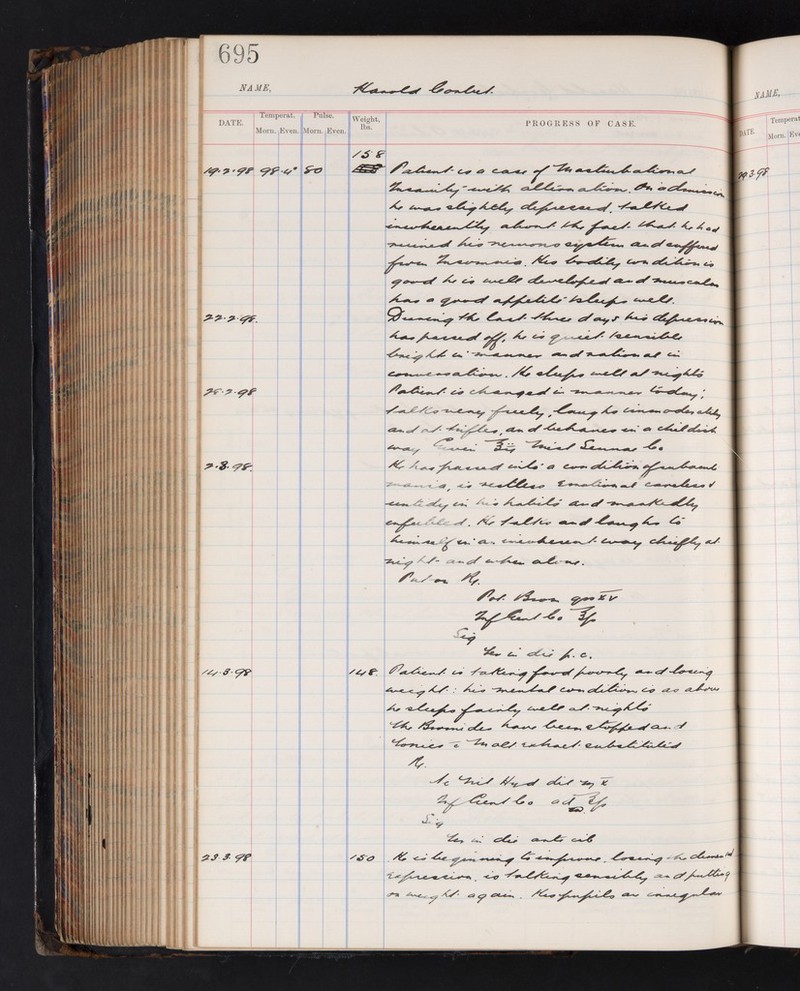 695
NAME, Harold Corlet.
DATE. Temperat. Morn. Even. Pulse. Morn. Even. Weight, lbs. PROGRESS OF CASE.
158
19.2.98 98.4° 80 Patient is a case of Masturbational
Insanity with alternation. On admission
he was slightly depressed, talked
incoherently about the fact that he had
ruined his nervous system and suffered
from Insomnia. His bodily condition is
good he is well developed and muscular
has a good appetite & sleeps well.
22.2.98. During the last three days his depression
has passed off, he is quiet & sensible
bright in manner and rational in
conversation. He sleeps well at nights
25.2.98 Patient is changed in manner today;
talks very freely, laughs immoderately
and at trifles, and behaves in a childish
way Given Mist Sennae Co
2.3.98. He has passed into a condition of subacute
mania, is restless emotional careless &
untidy in his habits and markedly
enfeebled. He talks and laughs to
himself in an incoherent way chiefly at
night and when alone.
Put on Rx.
Pot. Brom grs xv
Inf Gent Co ℥p
Sig
Ter in die p.c.
14.3.98 148 Patient is taking food poorly and losing
weight: his mental condition is as above
he sleeps fairly well at nights
The Bromides have been stopped and
Tonics c Malt extract substituted
Rx.
Ac Nit Hyd dil m x
Inf Gent Co ad ℥p
Sig
Ter in die ante cib
23.3.98 150 He is beginning to improve, losing the demented
expression, is talking sensibly and putting
on weight again. His pupils are irregular
NAME,
Temperat
DATE. Morn. Eve
29.3.98